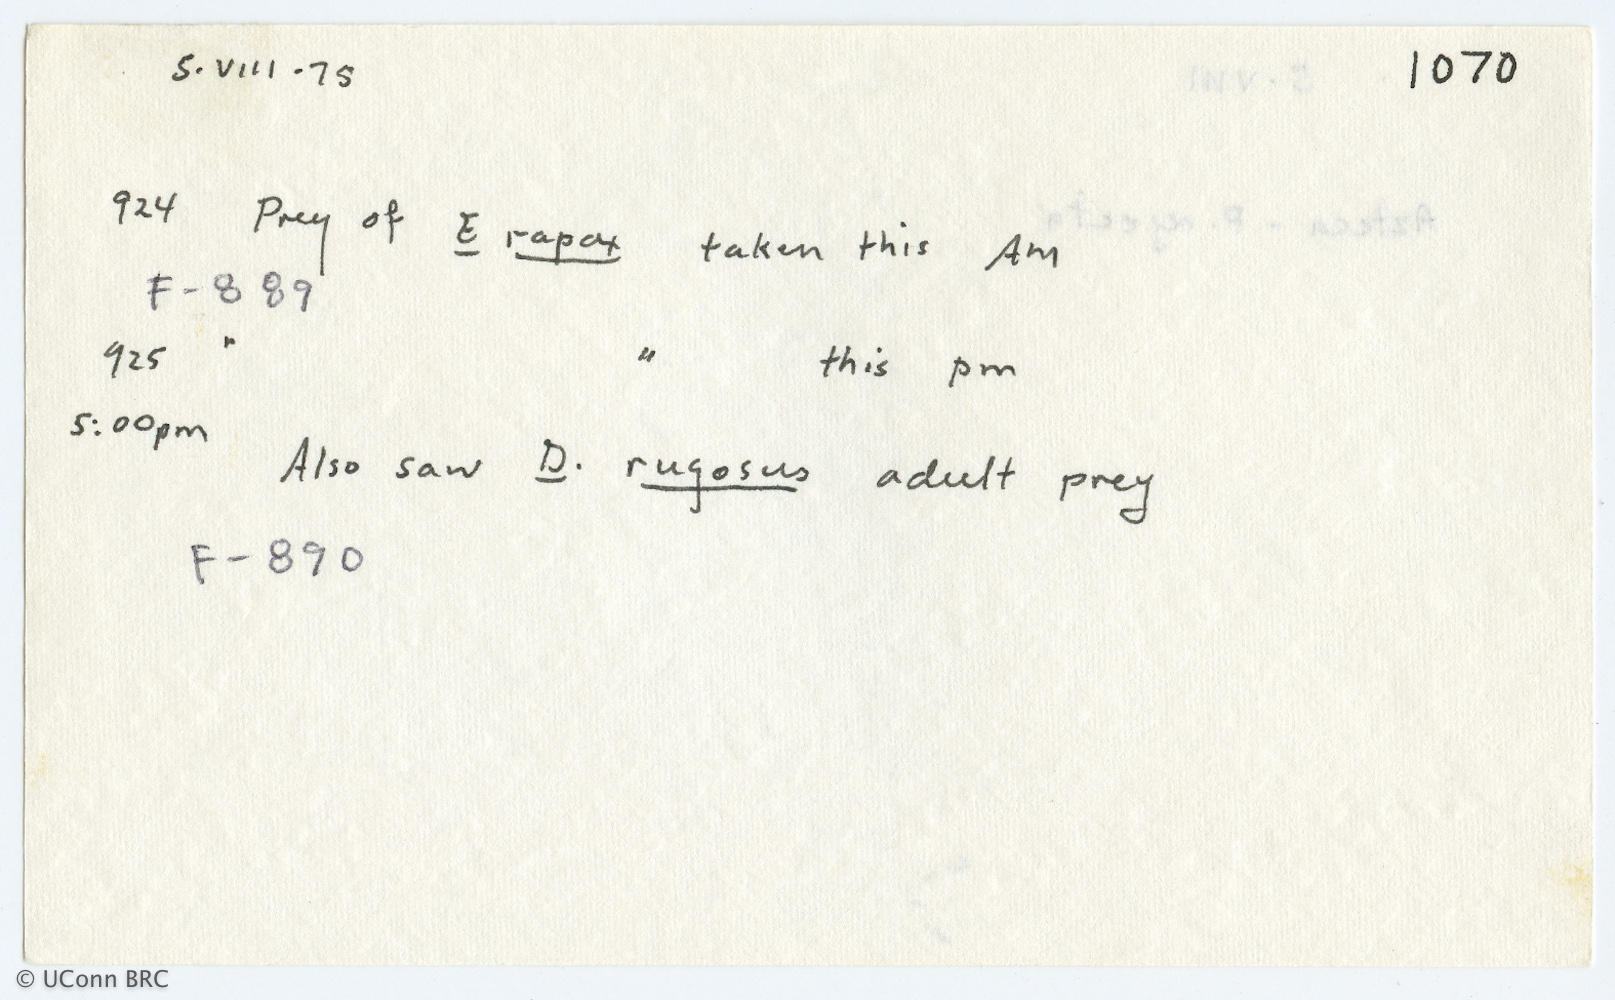 5·VIII·75 1070
924 Prey of E rapax taken this Am
F-889
925 " " this pm
5:00pm
Also saw D. rugosus adult prey
F-890
© UConn BRC